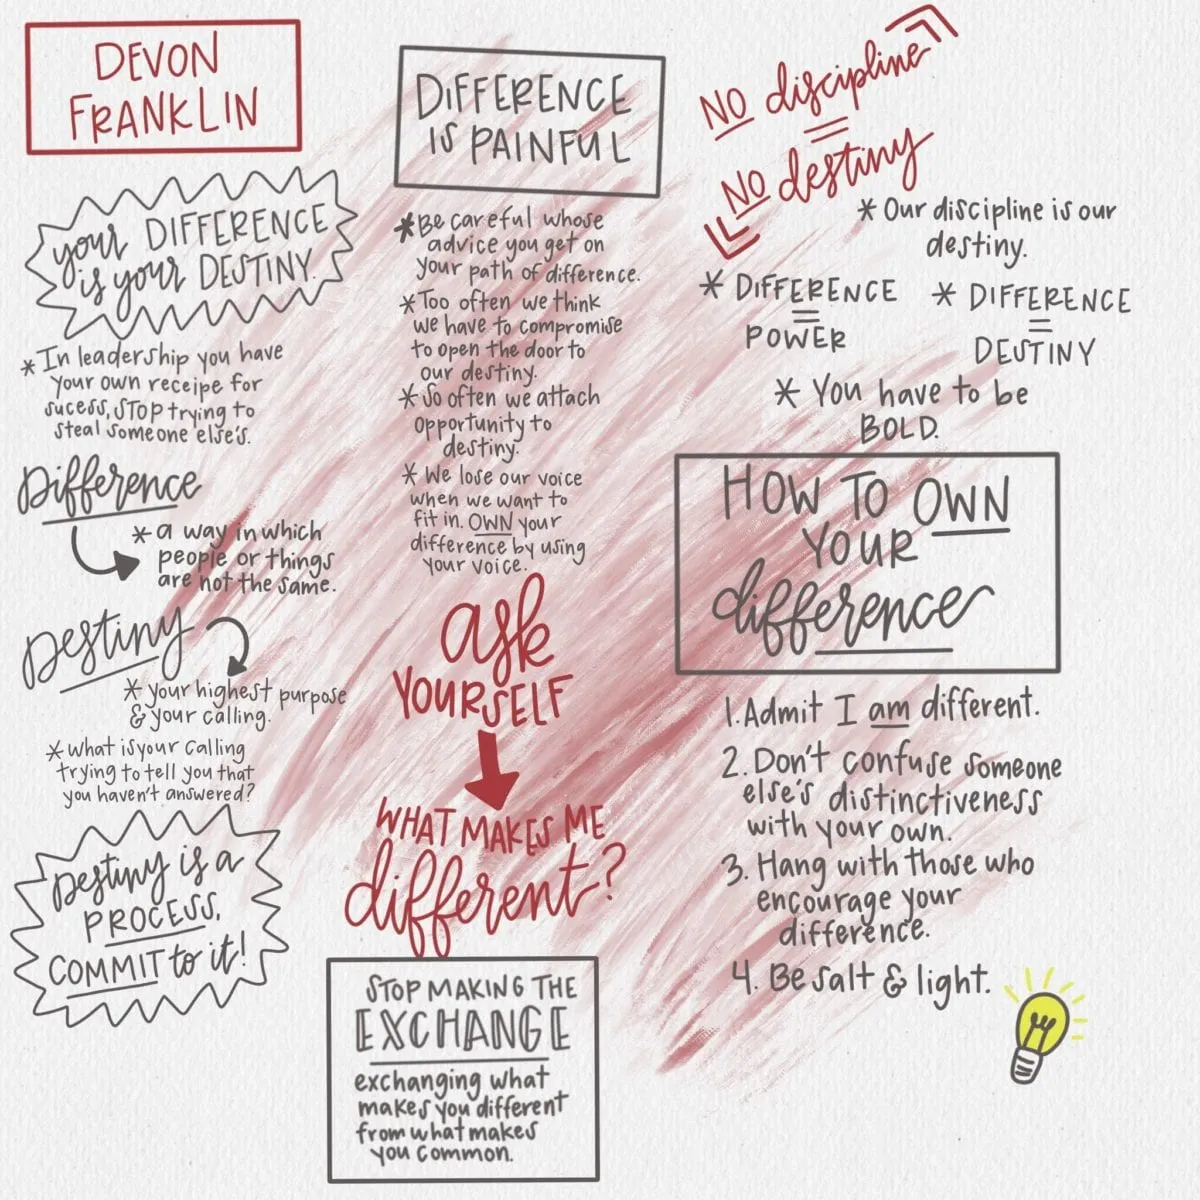 DEVON
FRANKLIN
your DIFFERENCE
is your DESTINY.
* In leadership you have
your own receipe for
sucess, STOP trying to
steal someone else's.
Difference
* a way in which
people or things
are not the same.
Destiny
* your highest purpose
& your calling.
* What is your calling
trying to tell you that
you haven't answered?
Destiny is a
PROCESS,
COMMIT to it!
DIFFERENCE
IS PAINFUL
* Be careful whose
advice you get on
your path of difference.
* Too often we think
we have to compromise
to open the door to
our destiny.
* So often we attach
opportunity to
destiny.
* We lose our voice
when we want to
fit in. OWN your
difference by using
your voice.
ask
YOURSELF
WHAT MAKES ME
different?
STOP MAKING THE
EXCHANGE
exchanging what
makes you different
from what makes
you common.
NO discipline
=
NO destiny
* Our discipline is our
destiny.
* DIFFERENCE
=
POWER
* DIFFERENCE
=
DESTINY
* You have to be
BOLD.
HOW TO OWN
YOUR
difference
1. Admit I am different.
2. Don't confuse someone
else's distinctiveness
with your own.
3. Hang with those who
encourage your
difference.
4. Be salt & light.